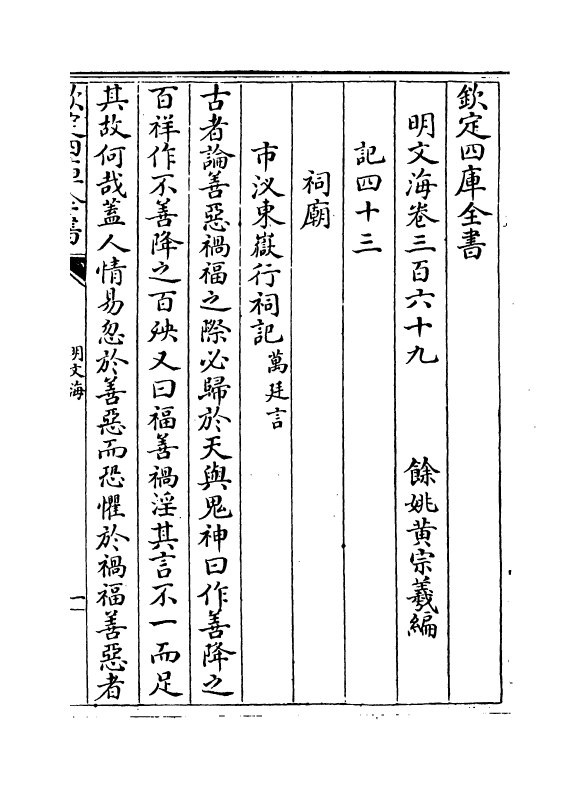 欽定四庫全書
明文海卷三百六十九
餘姚黄宗羲編
記四十三
祠廟
市汊東嶽行祠記 萬廷言
古者論善惡禍福之際必歸於天與鬼神曰作善降之
百祥作不善降之百殃又曰福善禍淫其言不一而足
其故何哉蓋人情易忽於善惡而恐懼於禍福善惡者
明文海
一